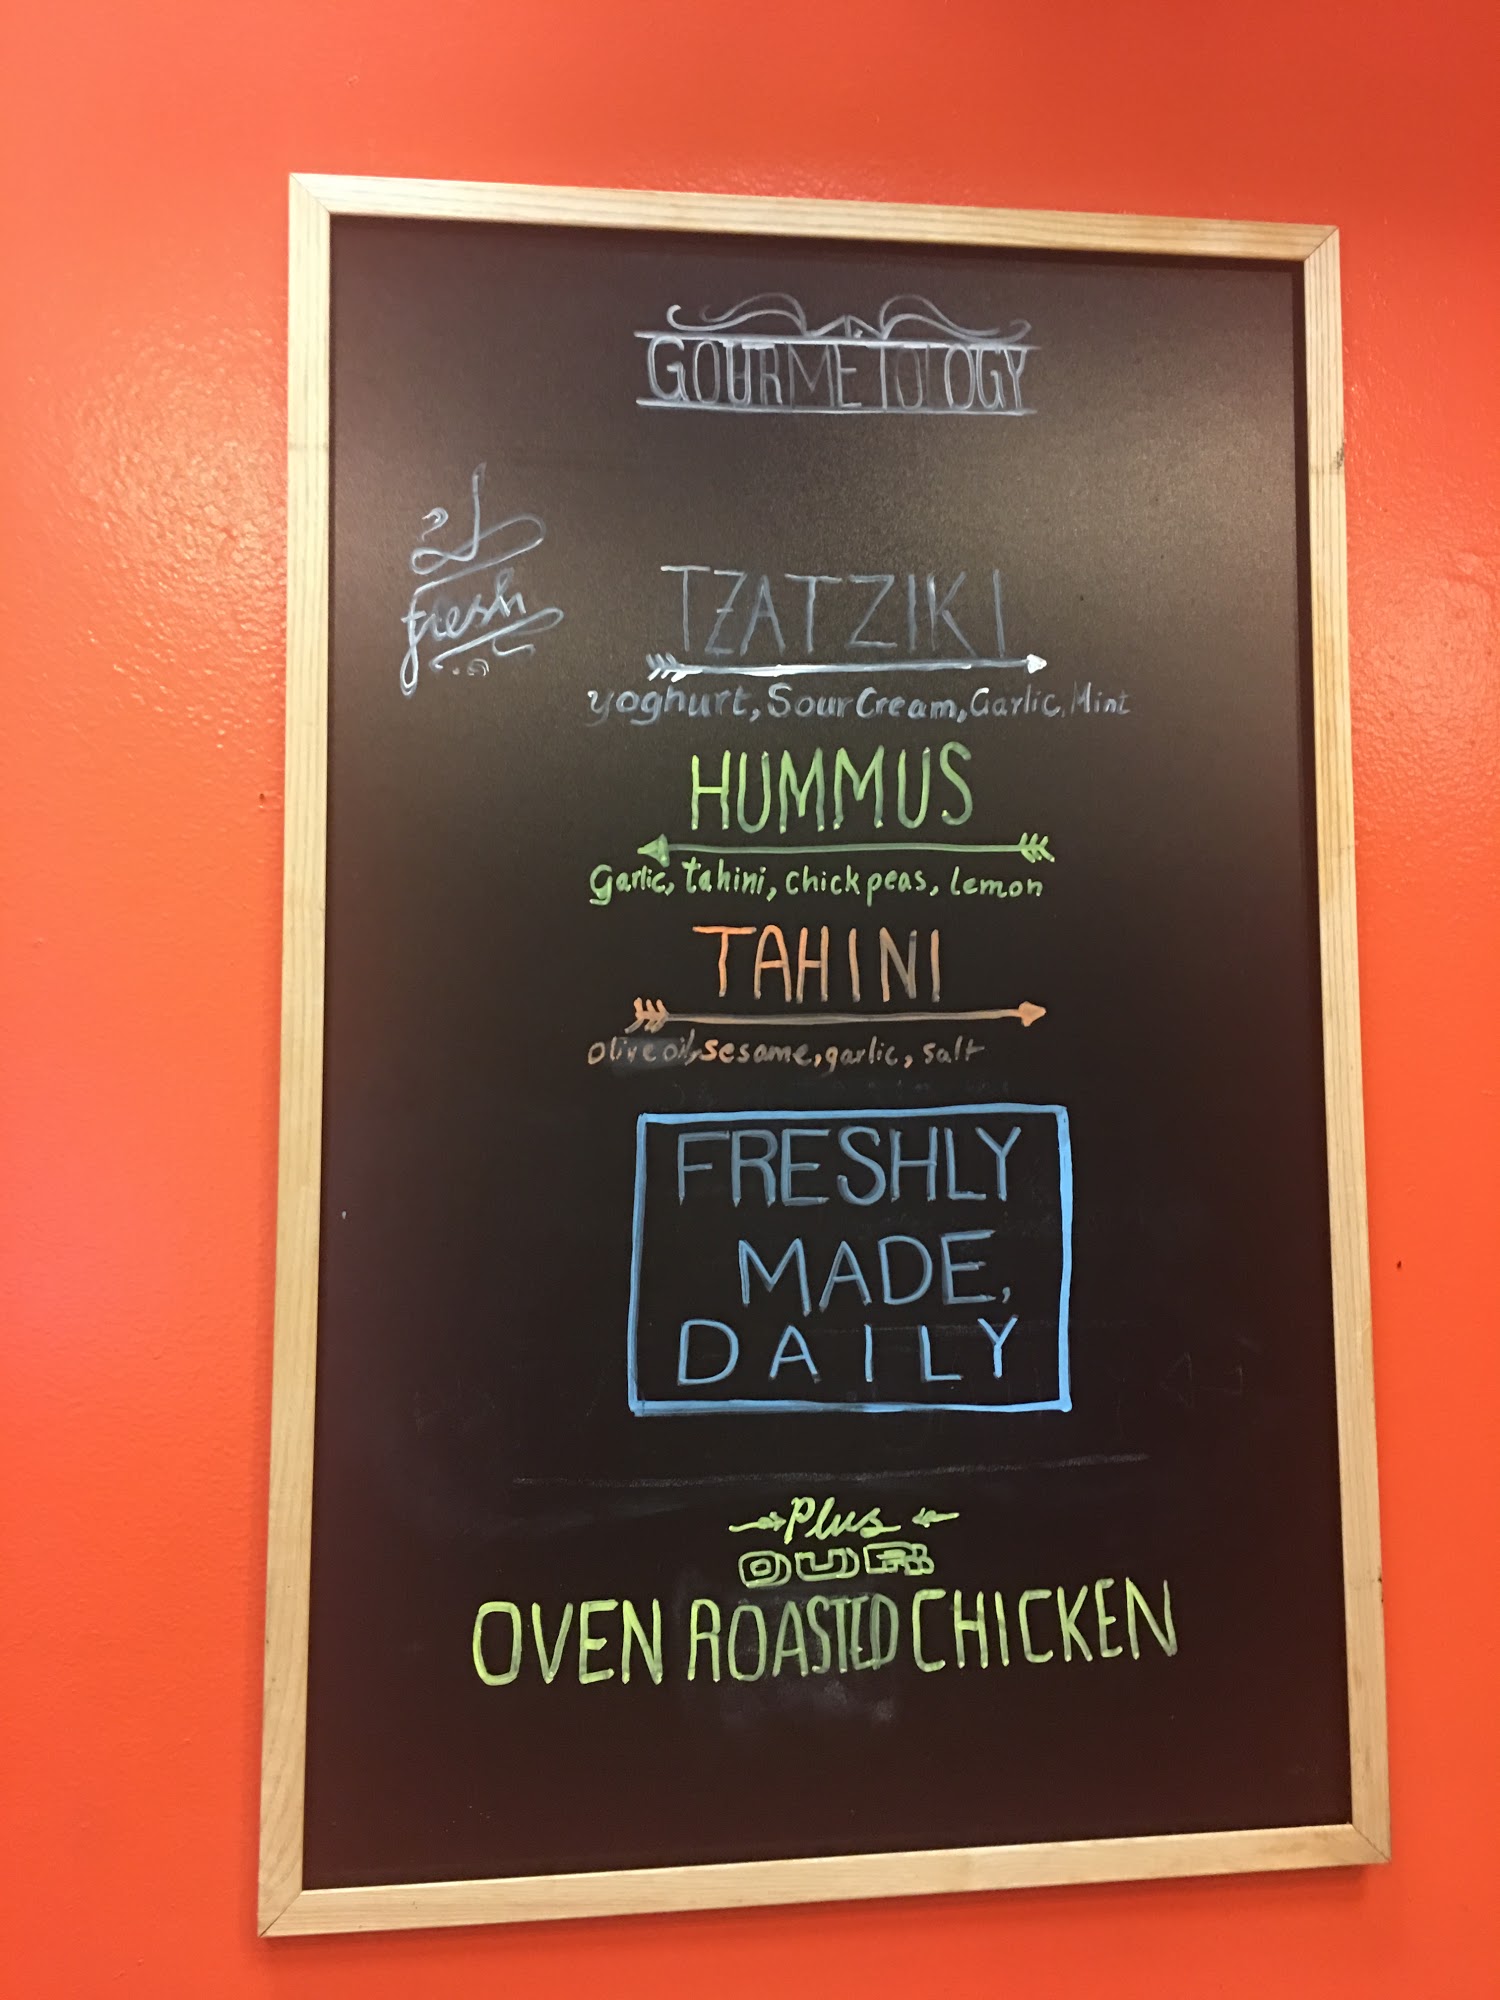 GOURMETOLOGY
fresh
TZATZIKI
Yoghurt, Sour Cream, Garlic, Mint
HUMMUS
Garlic, tahini, chickpeas, lemon
TAHINI
Olive oil, sesame, garlic, salt
FRESHLY
MADE,
DAILY
Plus
OUR
OVEN ROASTED CHICKEN